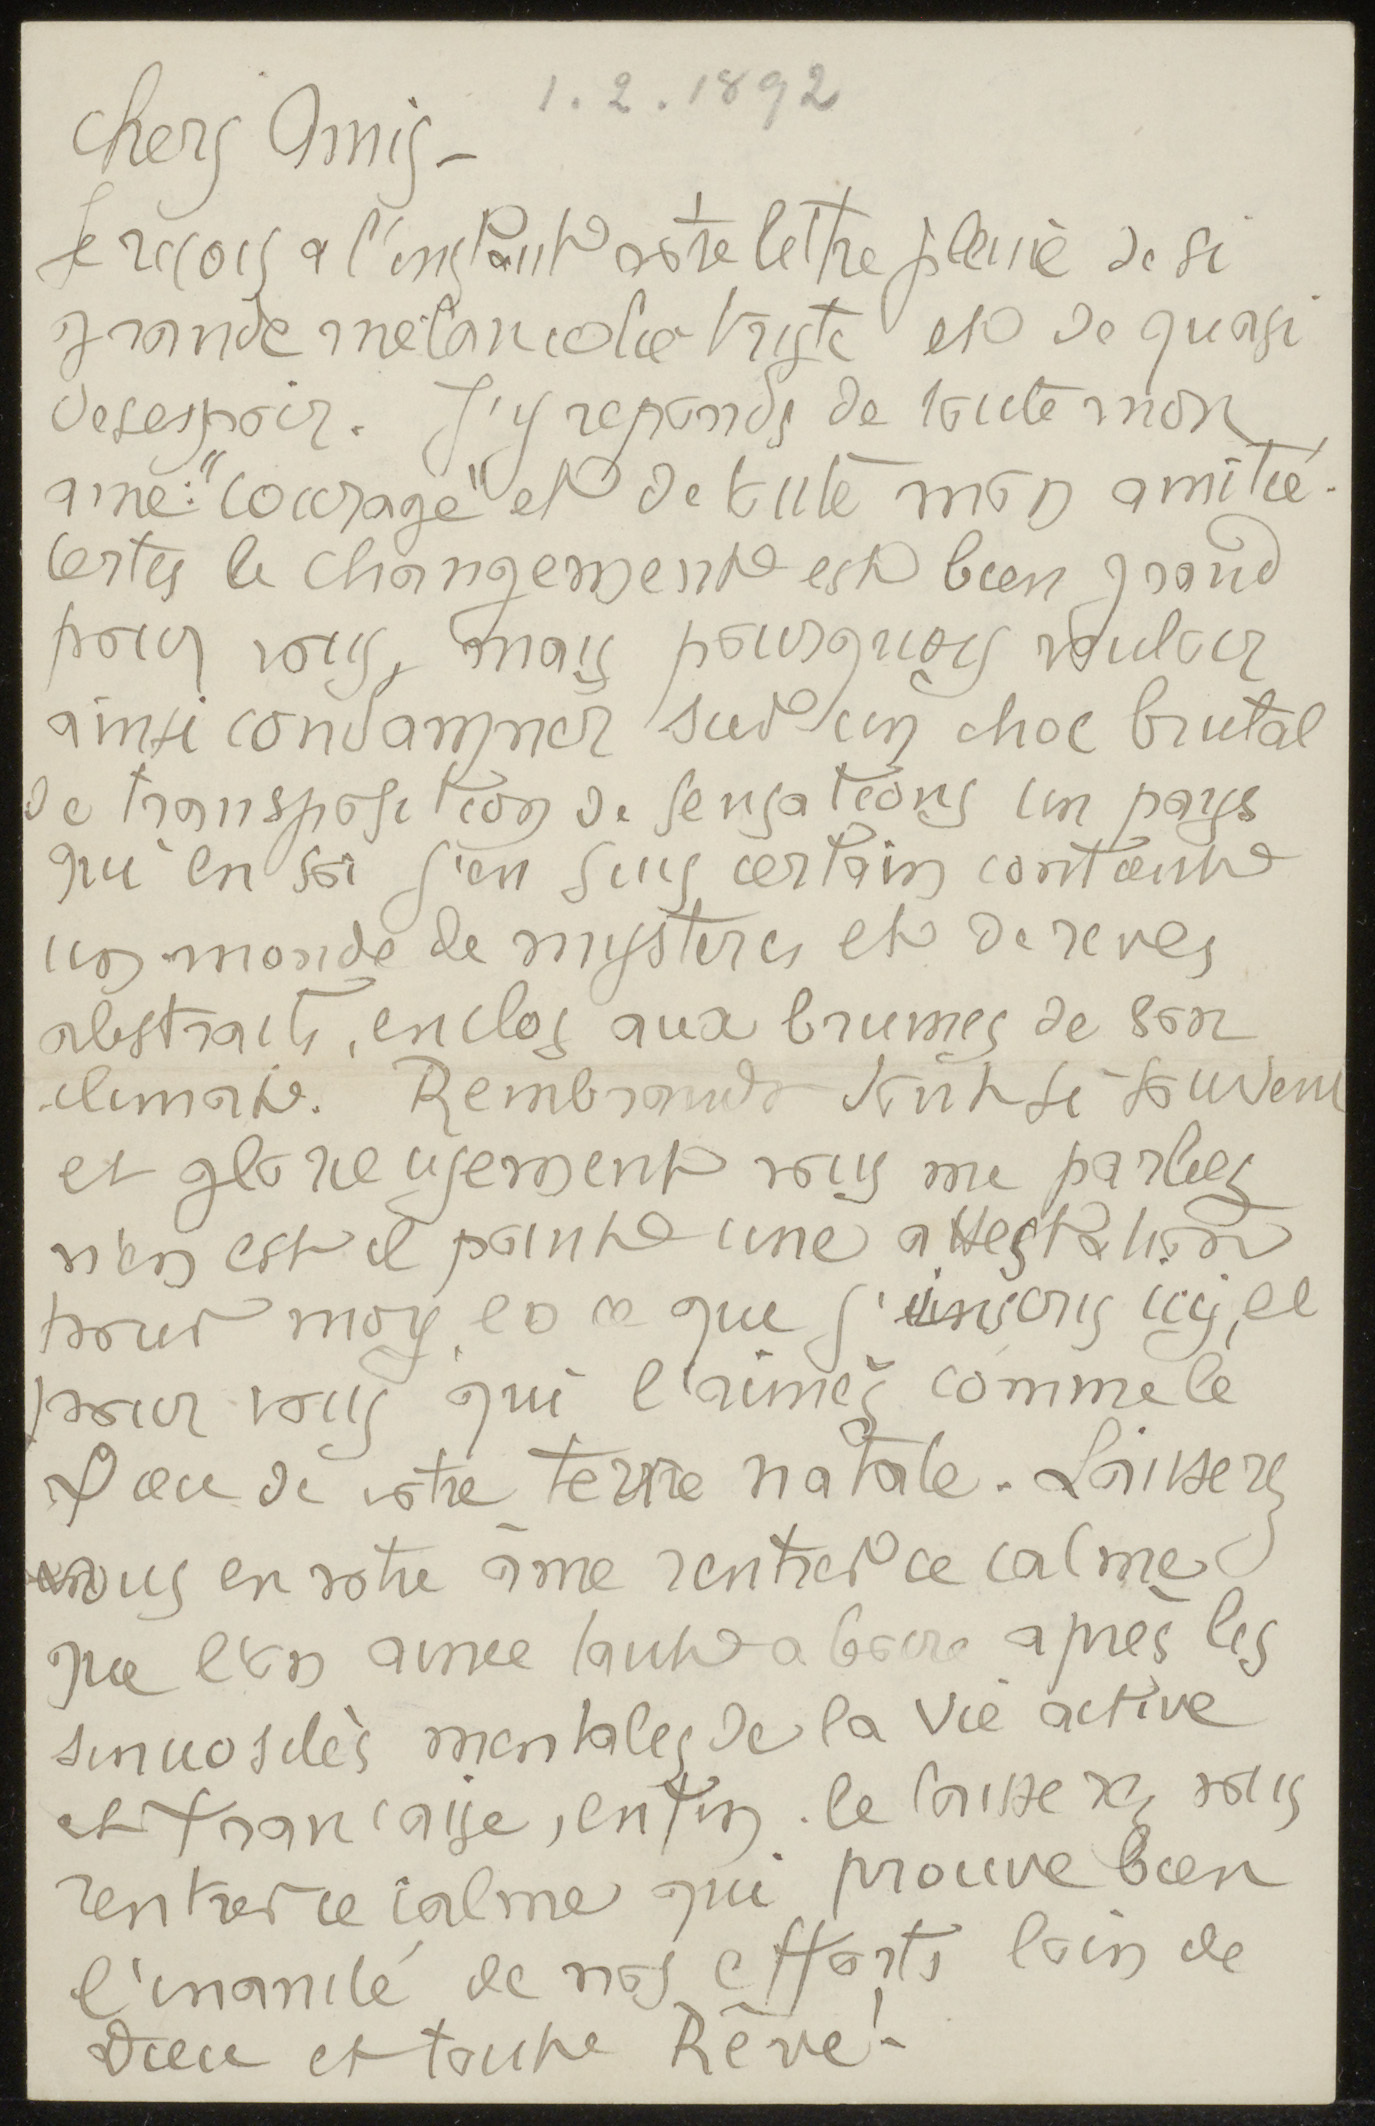 1.2.1892
Chers Amis -
Je reçois a l'instant votre lettre pleine de si
grande mélancolie triste et de quasi
desespoir. J'y reponds de toute mon
ame: "courage" et de toute mon amitié.
Certes le changement est bien grand
pour vous, mais pourquois vouloir
ainsi condamner sur un choc brutal
de transposition de sensations un pays
qui en soi j'en suis certain contient
un monde de mysteres et de reves
abstraits, enclos aux brumes de son
climat. Rembrandt dont si souvent
et glorieusement vous me parliez
n'en est il point une attestation
pour moy, et ce que j'inscris icy, et
pour vous qui l'aimez comme le
Dieu de votre terre natale. Laisserez
vous en votre âme rentrer ce calme
que l'on aime tant a boire après les
sinuosités mentales de la vie active
et française, enfin. le laisserez vous
rentrer ce calme qui prouve bien
l'inanité de nos efforts loin de
Dieu et toute Rêve! -